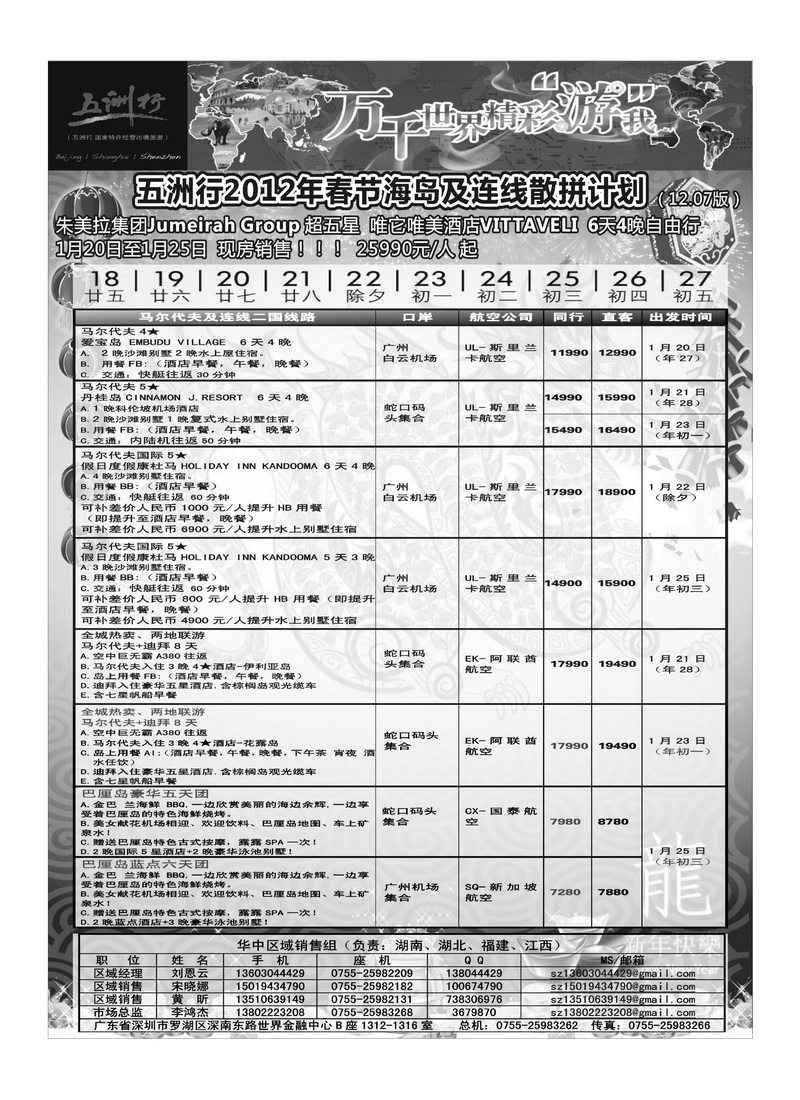 五洲行
（五洲行 国家特许经营出境旅游）
Beijing | Shanghai | Shenzhen
万千世界精彩“游”我
五洲行2012年春节海岛及连线散拼计划（12.07版）
朱美拉集团Jumeirah Group 超五星 唯它唯美酒店VITTAVELI 6天4晚自由行
1月20日至1月25日 现房销售！！！ 25990元/人 起
18 | 19 | 20 | 21 | 22 | 23 | 24 | 25 | 26 | 27
廿五 廿六 廿七 廿八 除夕 初一 初二 初三 初四 初五
马尔代夫及连线二国线路 口岸 航空公司 同行 直客 出发时间
马尔代夫 4★
爱宝岛 EMBUDU VILLAGE 6 天 4 晚
A. 2 晚沙滩别墅 2 晚水上屋住宿。
B. 用餐 FB:（酒店早餐，午餐，晚餐）
C. 交通：快艇往返 30 分钟
广州
白云机场
UL-斯里兰
卡航空
11990 12990
1 月 20 日
（年 27）
马尔代夫 5★
丹桂岛 CINNAMON J.RESORT 6 天 4 晚
A.1 晚科伦坡机场酒店
B.2 晚沙滩别墅 1 晚复式水上别墅住宿。
B.用餐 FB:（酒店早餐，午餐，晚餐）
C.交通：内陆机往返 50 分钟
蛇口码
头集合
UL-斯里兰
卡航空
14990 15990
1 月 21 日
（年 28）
15490 16490
1 月 23 日
（年初一）
马尔代夫国际 5★
假日度假康杜马 HOLIDAY INN KANDOOMA 6 天 4 晚
A.4 晚沙滩别墅住宿。
B.用餐 BB:（酒店早餐）
C.交通：快艇往返 60 分钟
可补差价人民币 1000 元/人提升 HB 用餐
（即提升至酒店早餐，晚餐）
可补差价人民币 6900 元/人提升水上别墅住宿
广州
白云机场
UL-斯里兰
卡航空
17990 18900
1 月 22 日
（除夕）
马尔代夫国际 5★
假日度假康杜马 HOLIDAY INN KANDOOMA 5 天 3 晚
A.3 晚沙滩别墅住宿。
B.用餐 BB:（酒店早餐）
C.交通：快艇往返 60 分钟
可补差价人民币 800 元/人提升 HB 用餐（即提升
至酒店早餐，晚餐）
可补差价人民币 4900 元/人提升水上别墅住宿
广州
白云机场
UL-斯里兰
卡航空
14900 15900
1 月 25 日
（年初三）
全城热卖、两地联游
马尔代夫+迪拜 8 天
A.空中巨无霸 A380 往返
B.马尔代夫入住 3 晚 4★酒店-伊利亚岛
C.岛上用餐 FB:（酒店早餐，午餐，晚餐）
D.迪拜入住豪华五星酒店,含棕榈岛观光缆车
E.含七星帆船早餐
蛇口码
头集合
EK-阿联酋
航空
17990 19490
1 月 21 日
（年 28）
全城热卖、两地联游
马尔代夫+迪拜 8 天
A.空中巨无霸 A380 往返
B.马尔代夫入住 3 晚 4★酒店-花露岛
C.岛上用餐 AI:（酒店早餐,午餐,晚餐,下午茶 宵夜 酒
水任饮）
D.迪拜入住豪华五星酒店,含棕榈岛观光缆车
E.含七星帆船早餐
蛇口码头
集合
EK-阿联酋
航空
17990 19490
1 月 23 日
（年初一）
巴厘岛豪华五天团
A.金巴 兰海鲜 BBQ,一边欣赏美丽的海边余辉,一边享
受着巴厘岛的特色海鲜烧烤。
B.美女献花机场相迎、欢迎饮料、巴厘岛地图、车上矿
泉水！
C.赠送巴厘岛特色古式按摩，露露 SPA 一次！
D.2 晚国际 5 星酒店+2 晚豪华泳池别墅！
蛇口码头
集合
CX-国泰航
空
7980 8780
1 月 25 日
（年初三）
巴厘岛蓝点六天团
A.金巴 兰海鲜 BBQ,一边欣赏美丽的海边余辉,一边享
受着巴厘岛的特色海鲜烧烤。
B.美女献花机场相迎、欢迎饮料、巴厘岛地图、车上矿
泉水！
C.赠送巴厘岛特色古式按摩，露露 SPA 一次！
D.2 晚蓝点酒店+3 晚豪华泳池别墅！
广州机场
集合
SQ-新加坡
航空
7280 7880
龍
新年快樂
华中区域销售组（负责：湖南、湖北、福建、江西）
职 位 姓 名 手 机 座 机 Q Q MS/邮箱
区域经理 刘恩云 13603044429 0755-25982209 138044429 sz13603044429@gmail.com
区域销售 宋晓娜 15019434790 0755-25982182 100674790 sz15019434790@gmail.com
区域销售 黄 昕 13510639149 0755-25982131 738306976 sz13510639149@gmail.com
市场总监 李鸿杰 13802223208 0755-25983268 3679870 sz13802223208@gmail.com
广东省深圳市罗湖区深南东路世界金融中心 B 座 1312-1316 室 总机：0755-25983262 传真：0755-25983266